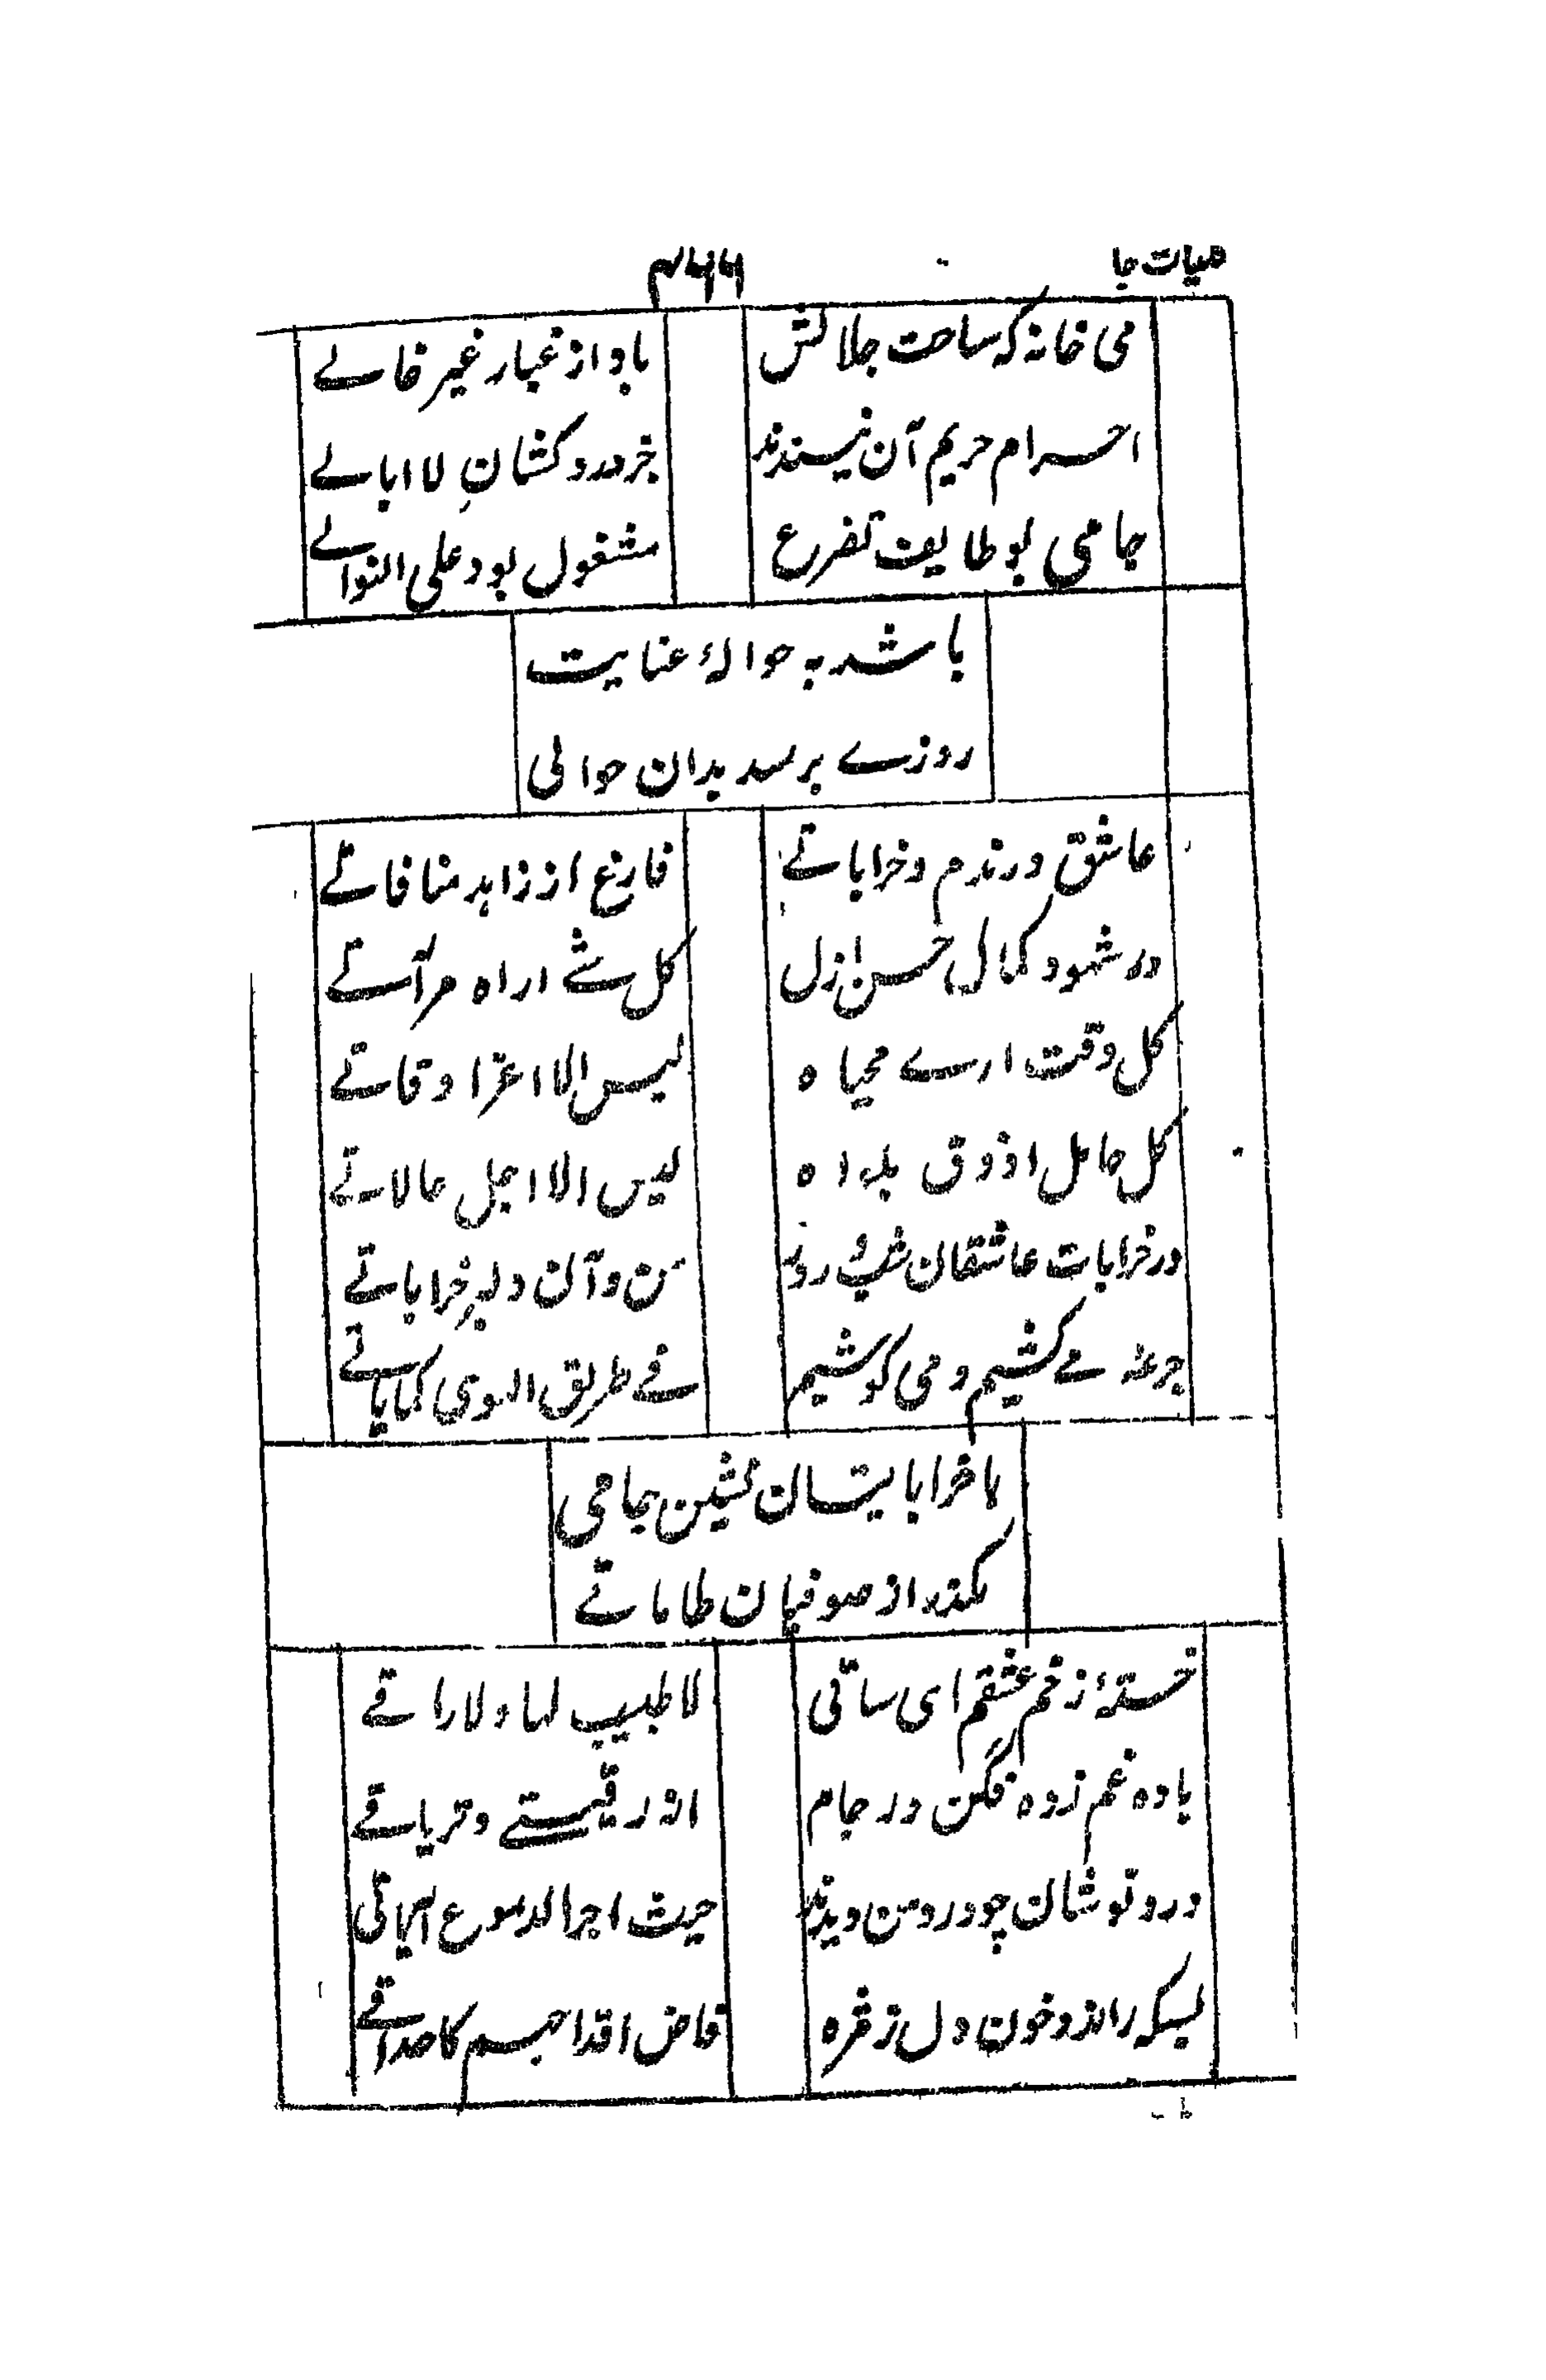 کلیات جا ۴۶۶
می خانه که ساحت جلالش باد از غبار غیر خالے
احرام حریم آن نپسندند جز درد کشانِ لا ابالے
جامی بوظایف تضرع مشغول بود علی التوالے
باشد به حوالۂ عنایت
روزے برسد بدان حوالی
عاشق و رندم و خراباتے فارغ از زاهد منافاتے
در شهود کمال حسن ازل کل شے اراه مرآتے
کل وقت ارے محیاه لیس الا اعز اوقاتے
کل حال اذوق بلواه لیس الا اجل حالاتے
در خرابات عاشقان شب و روز من و آن دلبر خراباتے
جرعه مے کشیم و می کوشیم فے طریق الهوی کمایاتے
با خراباتیان نشین جامی
بگذر از صوفیان طاماتے
خستهٔ زخم عشقم ای ساقی لا طبیب لها ولا راقے
باده غم زده فکن در جام انه رقیتے و تریاقے
درد نوشان چو درد من دیدند حیث اجرا لدموع آماقی
بسکه راند و خون دل ز مژه فاض اقداحهم کاحداقے